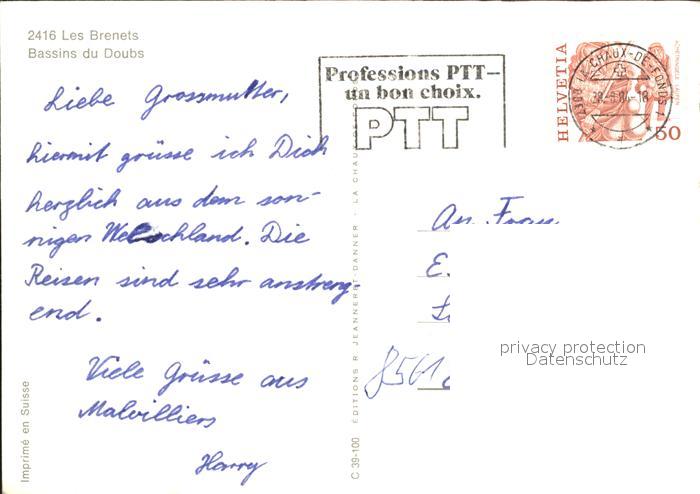 2416 Les Brenets
Bassins du Doubs
Liebe Grossmutter,
hiermit grüsse ich Dich
herzlich aus dem son-
nigen Welschland. Die
Reisen sind sehr anstreng-
end.
Viele Grüsse aus
Malvilliers
Harry
Imprimé en Suisse
C 39-100 EDITIONS R. JEANNERET-DANNER - LA CHAU
Professions PTT–
un bon choix.
PTT
HELVETIA
50
2300 LA CHAUX-DE-FONDS 1
An Frau
E.
8561
privacy protection
Datenschutz